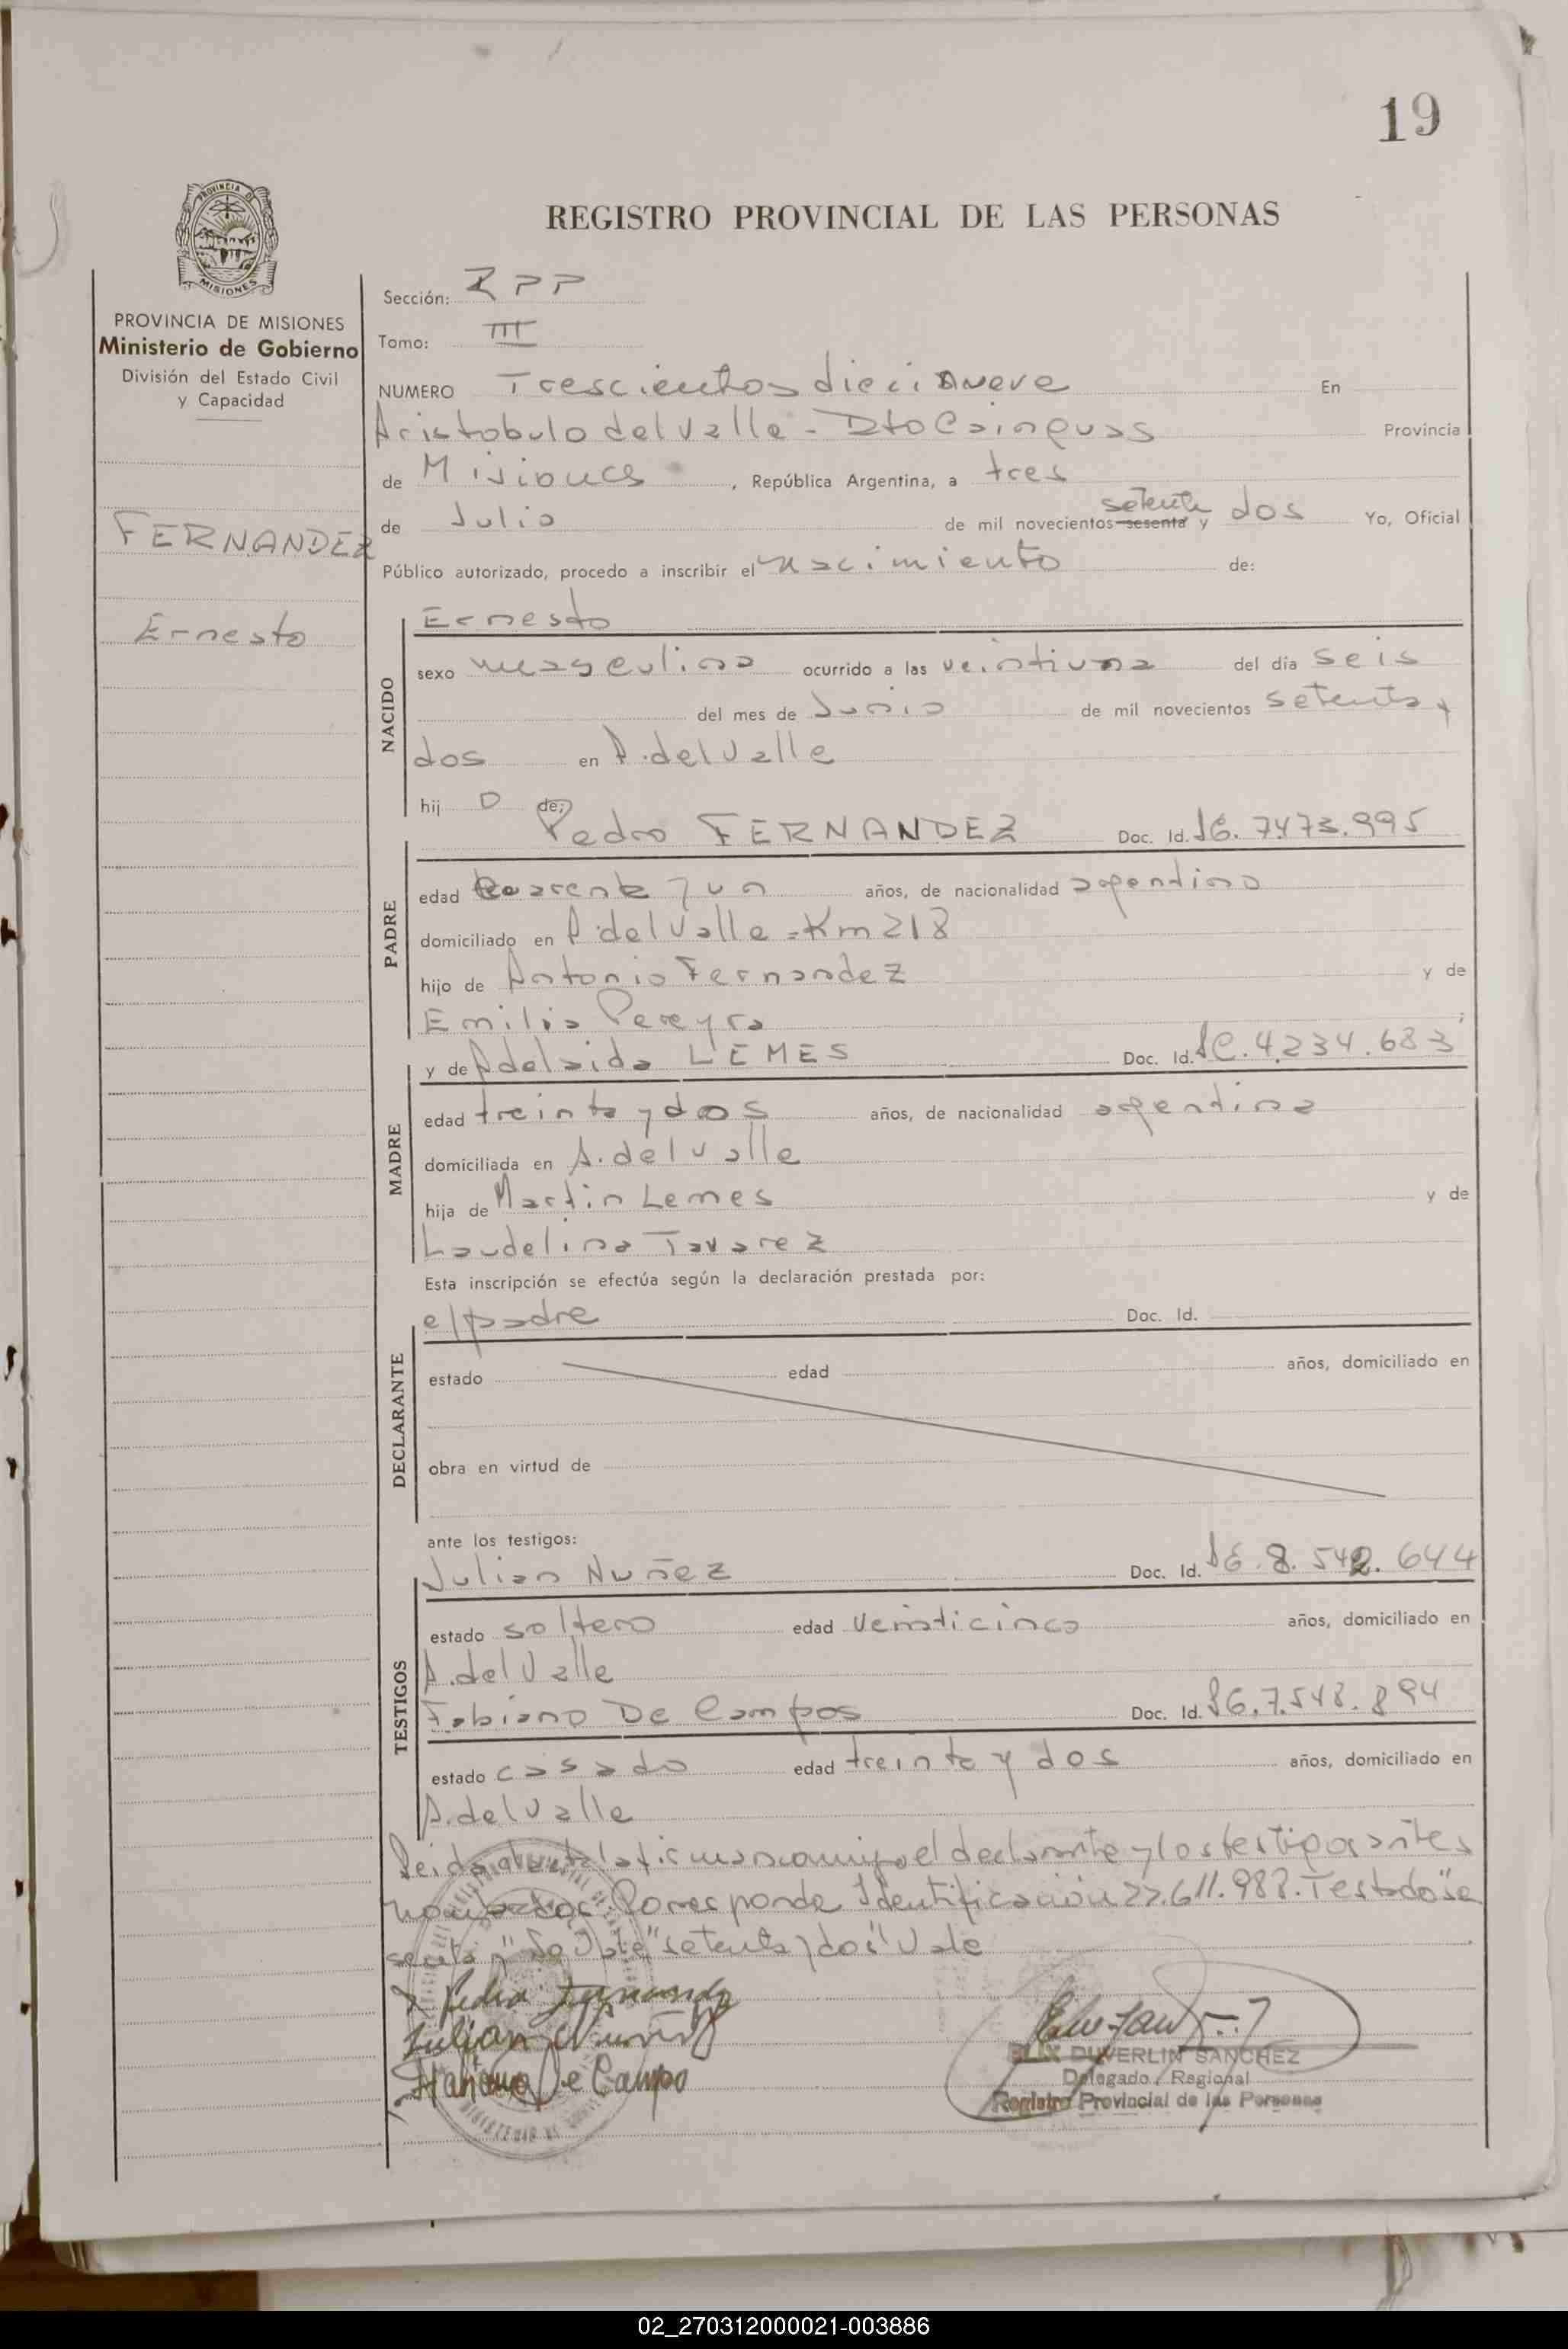 19
PROVINCIA DE
MISIONES
REGISTRO PROVINCIAL DE LAS PERSONAS
PROVINCIA DE MISIONES
Ministerio de Gobierno
División del Estado Civil
y Capacidad
FERNANDEZ
Ernesto
Sección: RPP
Tomo: III
NUMERO Trescientos diecinueve En
Aristobulo del Valle - Dto Cainguas Provincia
de Misiones, República Argentina, a tres
de Julio de mil novecientos sesenta setenta y dos Yo, Oficial
Público autorizado, procedo a inscribir el nacimiento de:
Ernesto
NACIDO
sexo masculino ocurrido a las veintiuna del día seis
del mes de Junio de mil novecientos setenta y
dos en A. del Valle
hij o de:
Pedro FERNANDEZ Doc. Id. 7.473.995
PADRE
edad cuarenta y un años, de nacionalidad argentino
domiciliado en A. del Valle - Km 218
hijo de Antonio Fernandez y de
Emilia Pereyra
y de Adelaida LEMES Doc. Id. 4.234.683
MADRE
edad treinta y dos años, de nacionalidad argentina
domiciliada en A. del Valle
hija de Martin Lemes y de
Laudelina Tavarez
Esta inscripción se efectúa según la declaración prestada por:
el padre Doc. Id.
DECLARANTE
estado edad años, domiciliado en
obra en virtud de
ante los testigos:
Julian Nuñez Doc. Id. 8.542.644
TESTIGOS
estado soltero edad veinticinco años, domiciliado en
A. del Valle
Fabiano De Campos Doc. Id. 7.548.894
estado casado edad treinta y dos años, domiciliado en
A. del Valle
Leida el acta la firman conmigo el declarante y los testigos antes
nombrados. Corresponde Identificación 22.611.982. Testado "se
senta y" "setenta y dos" Vale
Pedro Fernandez
Julian Nuñez
Fabiano De Campo
ELIX DUVERLIN SANCHEZ
Delegado Regional
Registro Provincial de las Personas
02_270312000021-003886